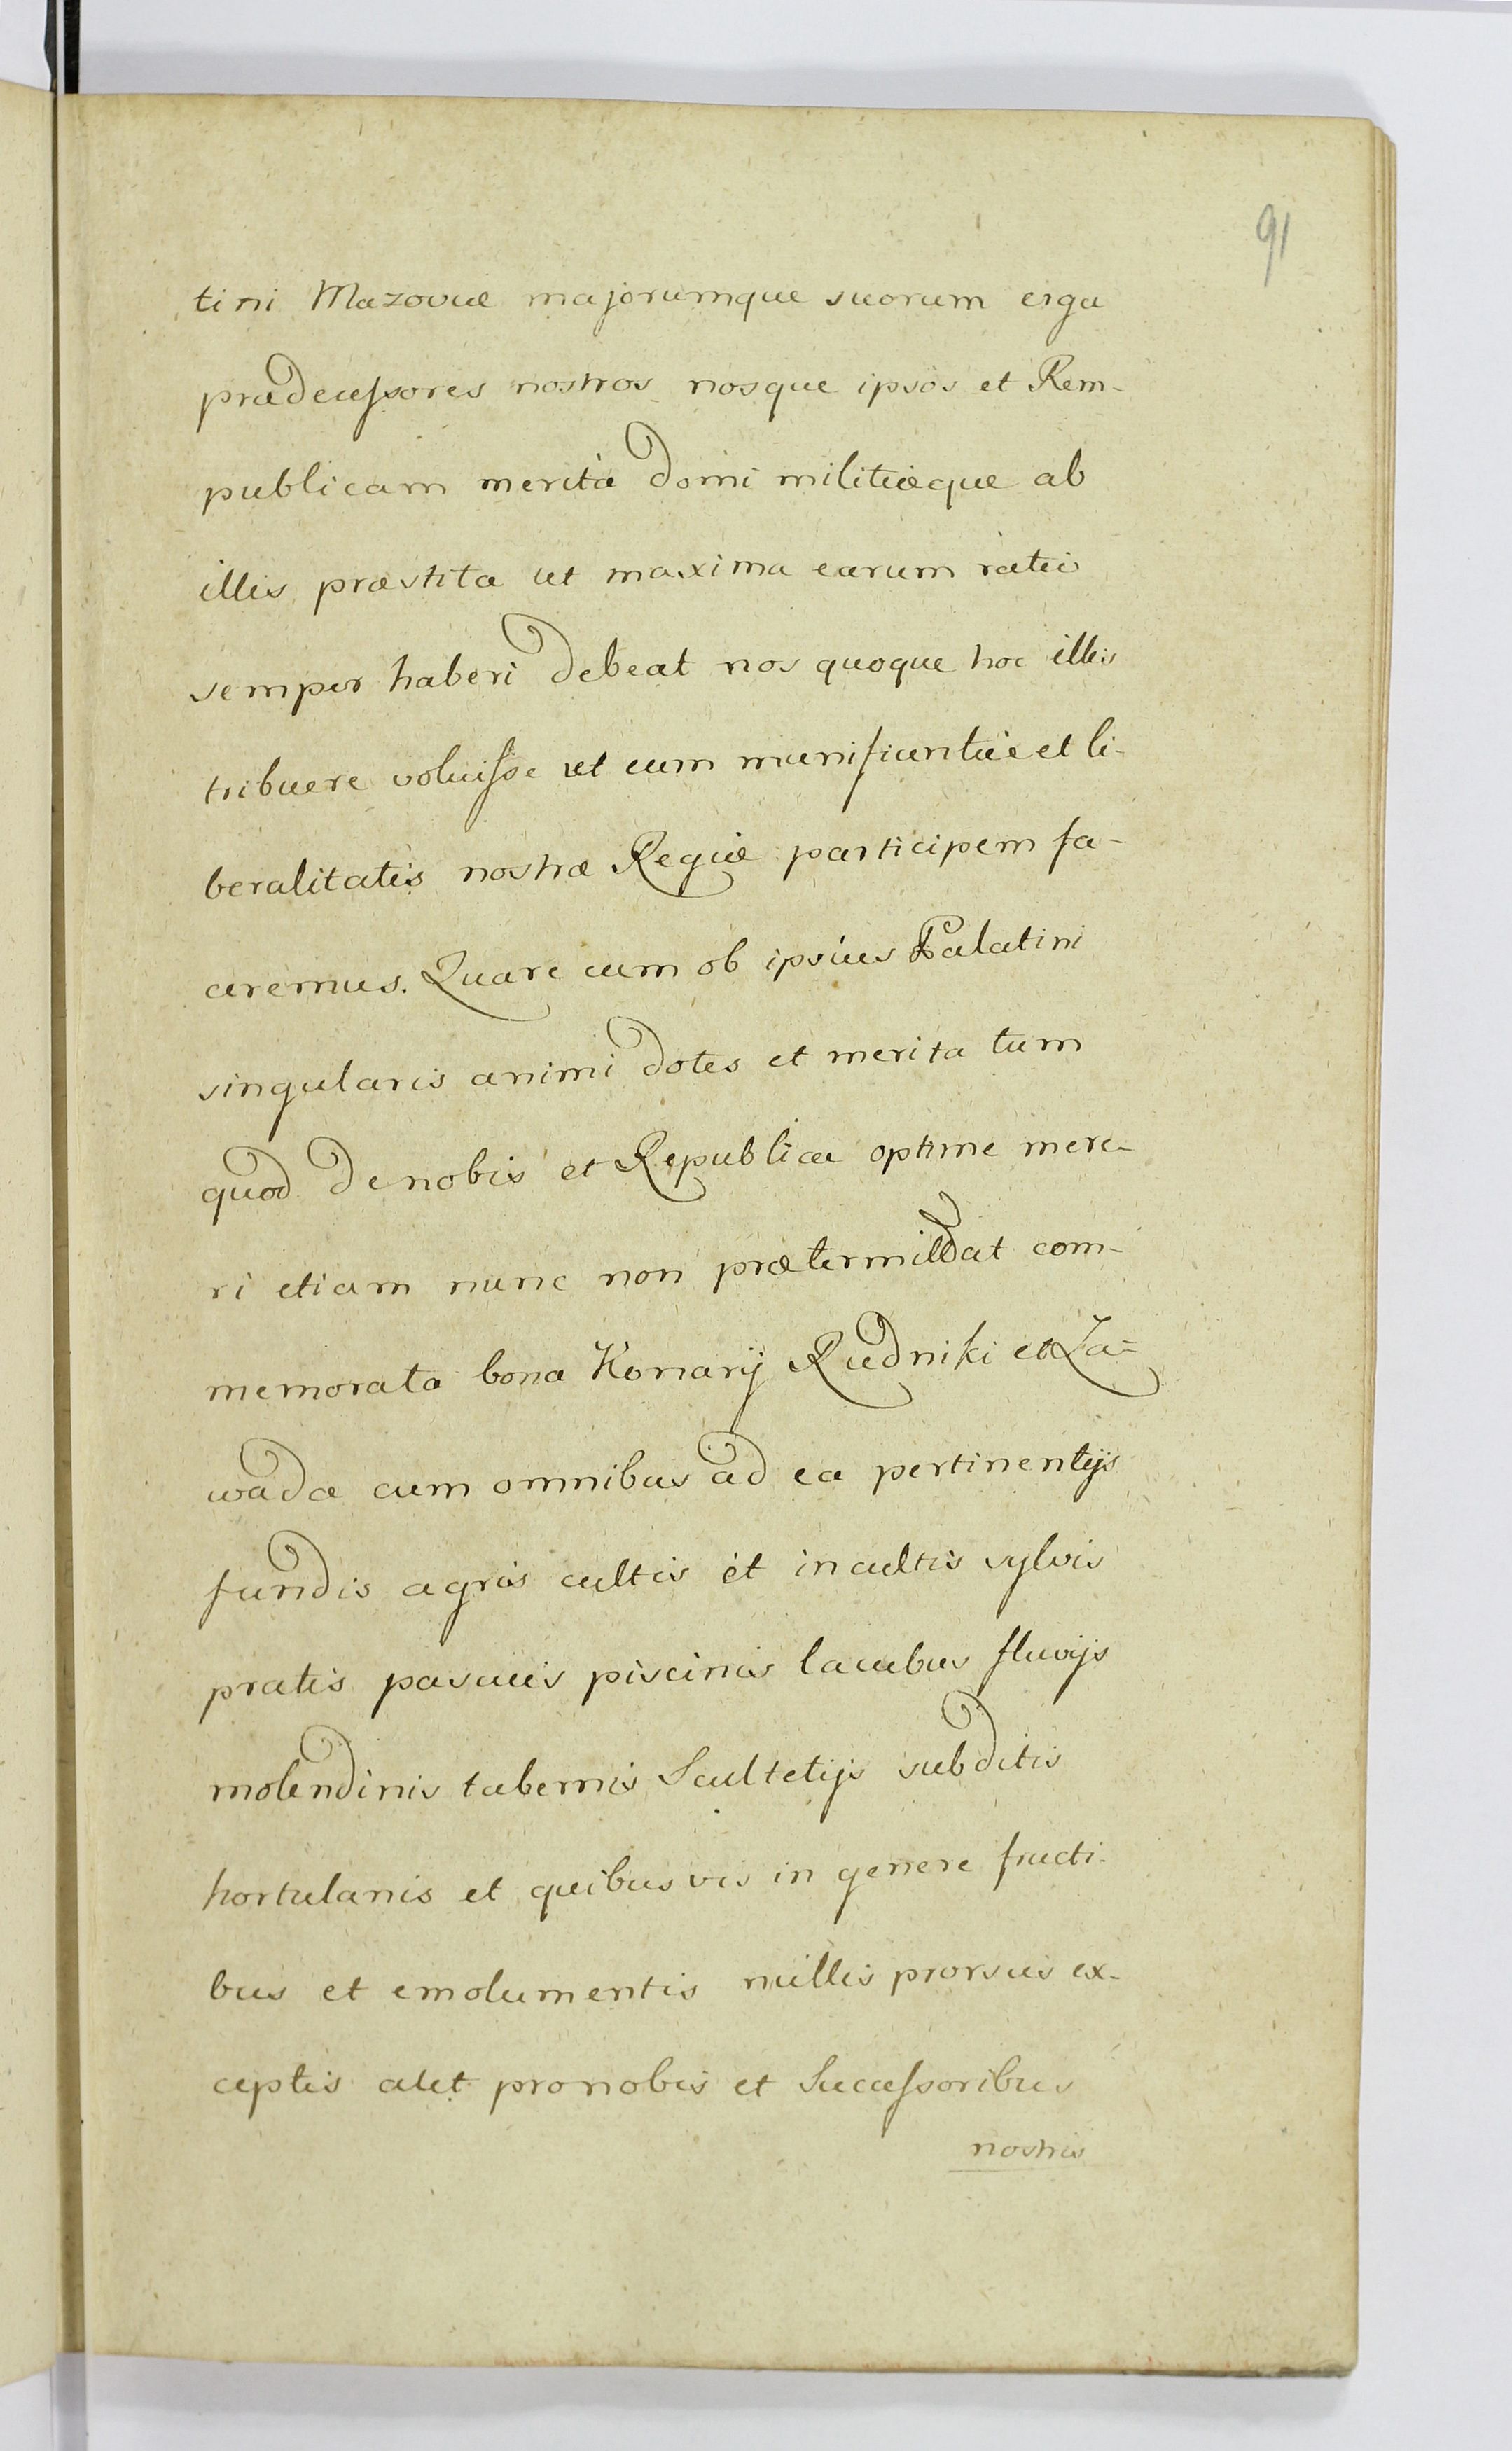 91
tini Mazoviæ majorumque suorum erga
prædecessores nostros nosque ipsos et Rem-
publicam merita domi militiæque ab
illis præstita ut maxima earum ratio
semper haberi debeat nos quoque hoc illis
tribuere voluisse ut eum munificentiæ et li-
beralitatis nostræ Regiæ participem fa-
ceremus. Quare cum ob ipsius Palatini
singularis animi dotes et merita tum
quod de nobis et Republica optime mere-
ri etiam nunc non prætermittat com-
memorata bona Konarÿ Rudniki et Za-
wada cum omnibus ad ea pertinentÿs
fundis agris cultis et incultis sylvis
pratis pascuis piscinis lacubus fluvÿs
molendinis tabernis Scultetÿs subditis
hortulanis et quibusvis in genere fructi-
bus et emolumentis nullis prorsus ex-
ceptis pro nobis et Successoribus
nostris